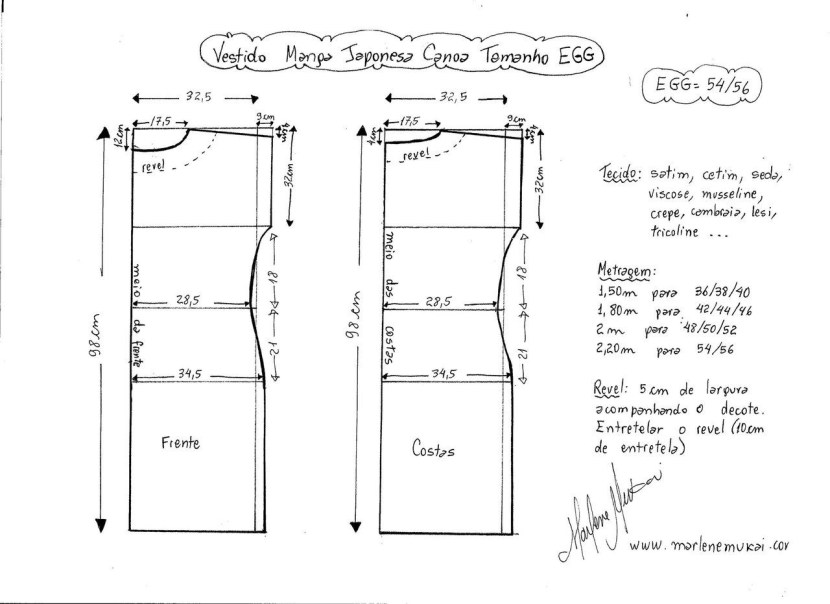 Vestido Manga Japonesa Canoa Tamanho EGG
EGG = 54/56
32,5
17,5
9cm
4cm
12cm
revel
32cm
98cm
meio da frente
18
28,5
12
34,5
Frente
32,5
17,5
9cm
4cm
4cm
revel
32cm
98cm
meio das costas
18
28,5
12
34,5
Costas
Tecido: satim, cetim, seda,
viscose, musseline,
crepe, cambraia, lesi,
tricoline ...
Metragem:
1,50m para 36/38/40
1,80m para 42/44/46
2m para 48/50/52
2,20m para 54/56
Revel: 5 cm de largura
acompanhando o decote.
Entretelar o revel (10cm
de entretela)
Marlene Mukai
www.marlenemukai.com